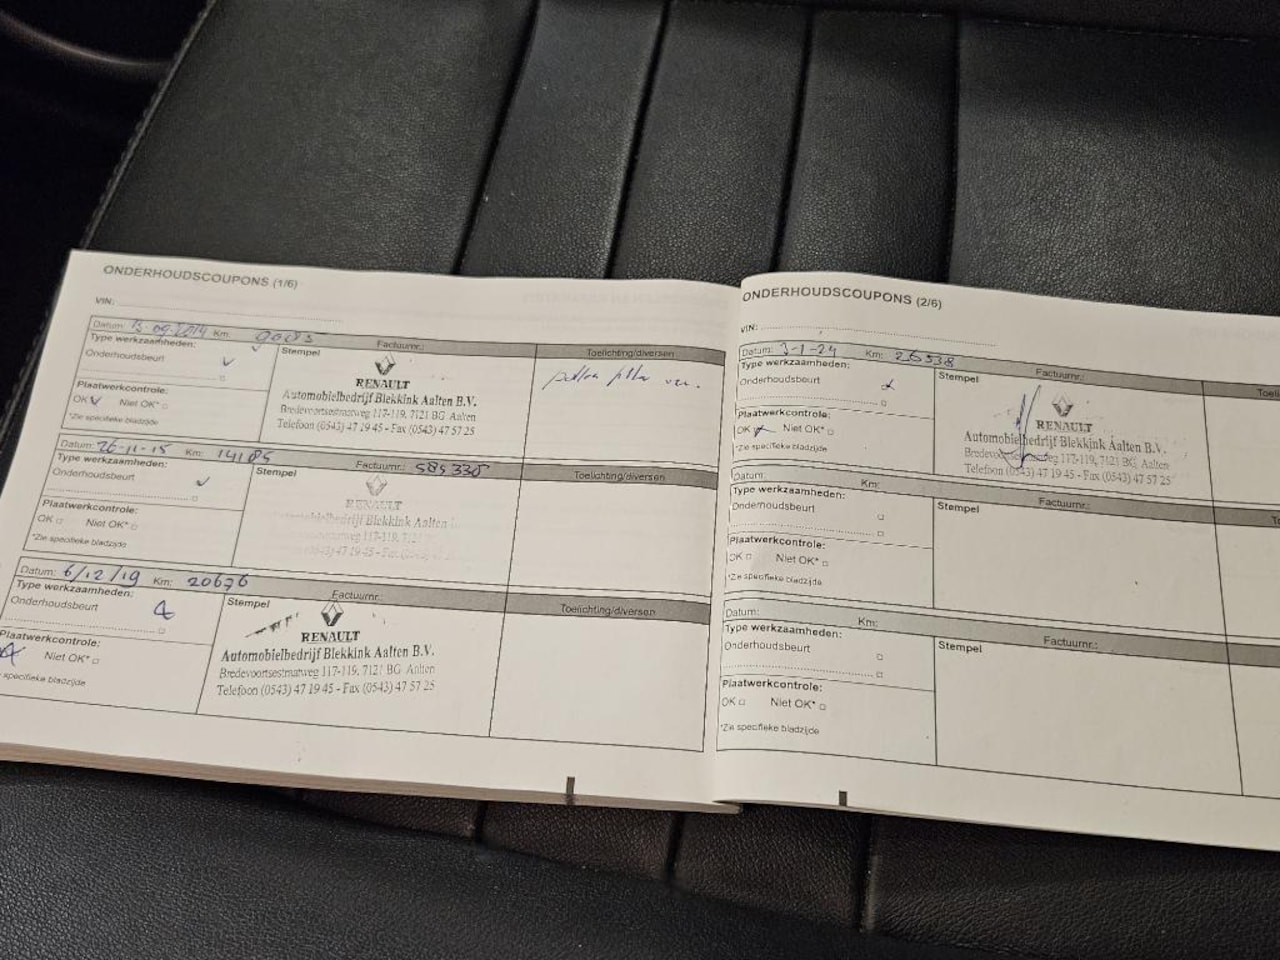 ONDERHOUDSCOUPONS (1/6)
VIN:
Datum: 13-09-2014 Km: 9083 Factuurnr.:
Type werkzaamheden:
Onderhoudsbeurt
Stempel
Toelichting/diversen
RENAULT
Automobielbedrijf Blekkink Aalten B.V.
Bredevoortsestraatweg 117-119, 7121 BG Aalten
Telefoon (0543) 47 19 45 - Fax (0543) 47 57 25
pollen filter
Plaatwerkcontrole:
OK Niet OK*
*Zie specifieke bladzijde
Datum: 26-11-15 Km: 14185 Factuurnr.: 585330
Type werkzaamheden:
Onderhoudsbeurt
Stempel
Toelichting/diversen
RENAULT
Automobielbedrijf Blekkink Aalten
117-119, 7121
(0543) 47 19 45 - Fax (0543) 47
Plaatwerkcontrole:
OK Niet OK*
*Zie specifieke bladzijde
Datum: 6/12/19 Km: 20676 Factuurnr.:
Type werkzaamheden:
Onderhoudsbeurt
Stempel
Toelichting/diversen
RENAULT
Automobielbedrijf Blekkink Aalten B.V.
Bredevoortsestraatweg 117-119, 7121 BG Aalten
Telefoon (0543) 47 19 45 - Fax (0543) 47 57 25
Plaatwerkcontrole:
Niet OK*
specifieke bladzijde
ONDERHOUDSCOUPONS (2/6)
VIN:
Datum: 3-1-24 Km: 26538 Factuurnr.:
Type werkzaamheden:
Onderhoudsbeurt
Stempel
RENAULT
Automobielbedrijf Blekkink Aalten B.V.
Bredevoortsestraatweg 117-119, 7121 BG Aalten
Telefoon (0543) 47 19 45 - Fax (0543) 47 57 25
Plaatwerkcontrole:
OK Niet OK*
*Zie specifieke bladzijde
Datum: Km: Factuurnr.:
Type werkzaamheden:
Onderhoudsbeurt
Stempel
Plaatwerkcontrole:
OK Niet OK*
*Zie specifieke bladzijde
Datum: Km: Factuurnr.:
Type werkzaamheden:
Onderhoudsbeurt
Stempel
Plaatwerkcontrole:
OK Niet OK*
*Zie specifieke bladzijde